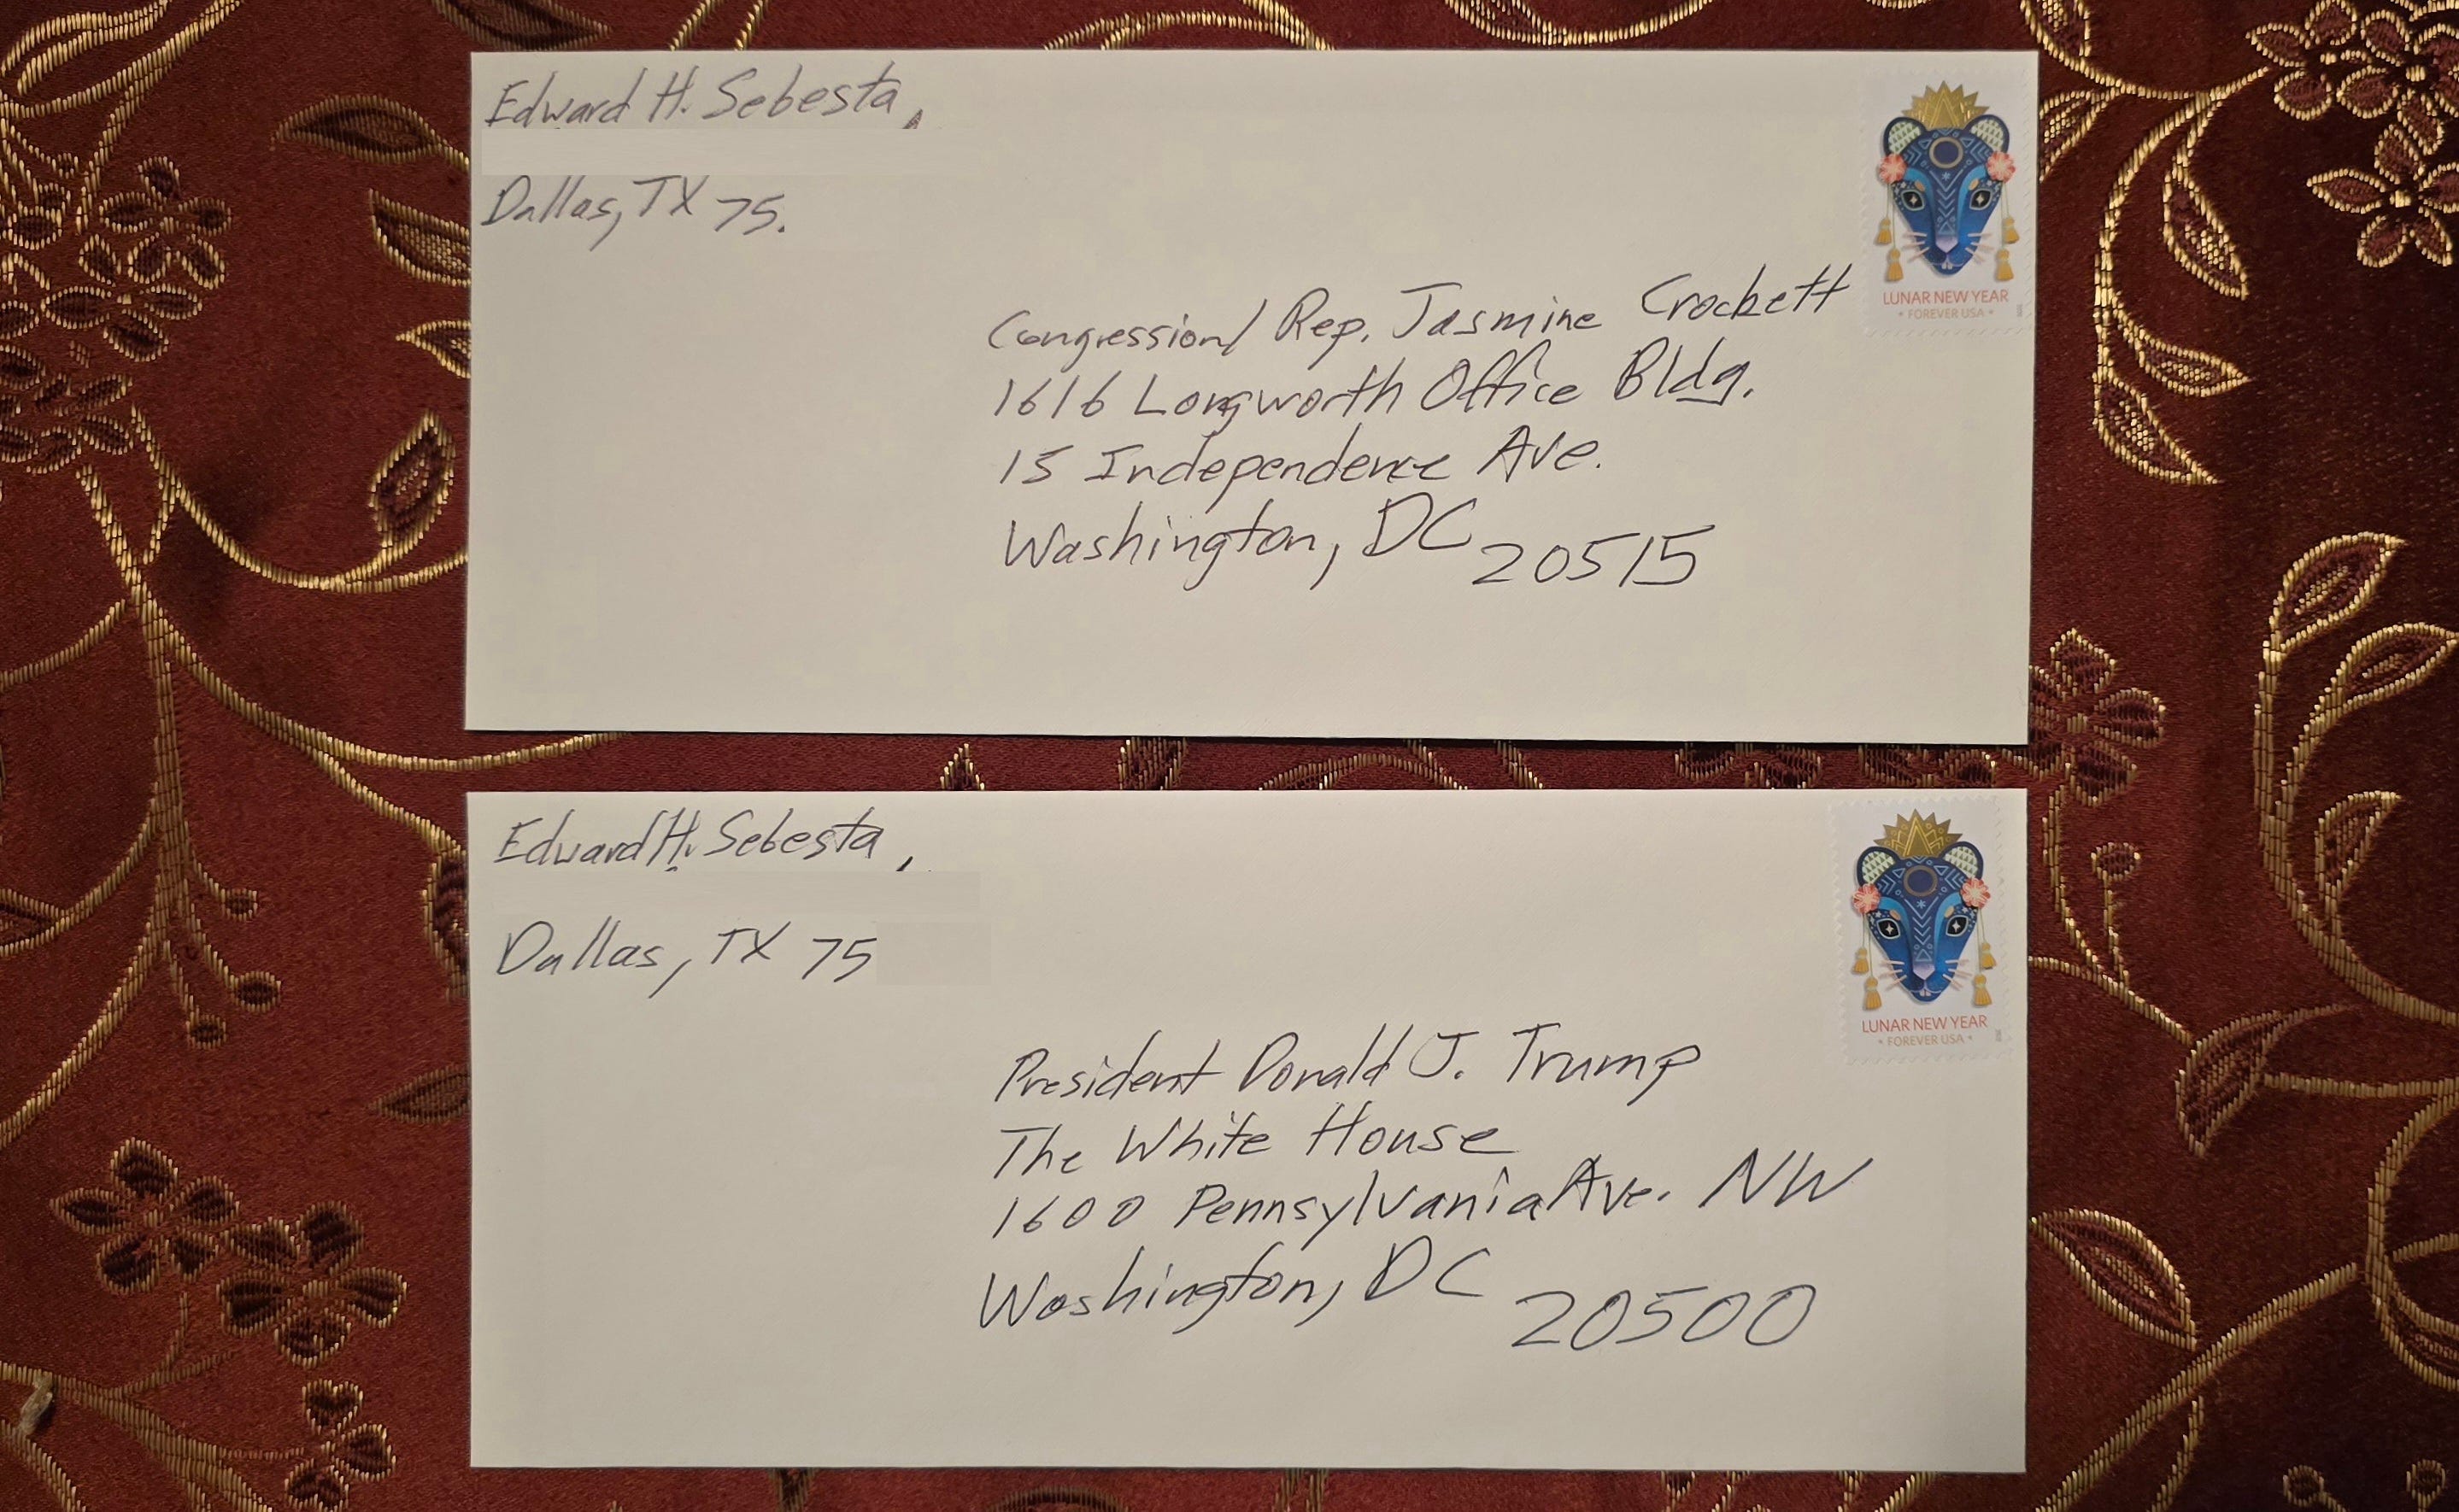 Edward H. Sebesta,
Dallas, TX 75.
LUNAR NEW YEAR
* FOREVER USA *
Congressionl Rep. Jasmine Crockett
1616 Longworth Office Bldg.
15 Independence Ave.
Washington, DC 20515
Edward H. Sebesta,
Dallas, TX 75
LUNAR NEW YEAR
* FOREVER USA *
President Donald J. Trump
The White House
1600 Pennsylvania Ave. NW
Washington, DC 20500